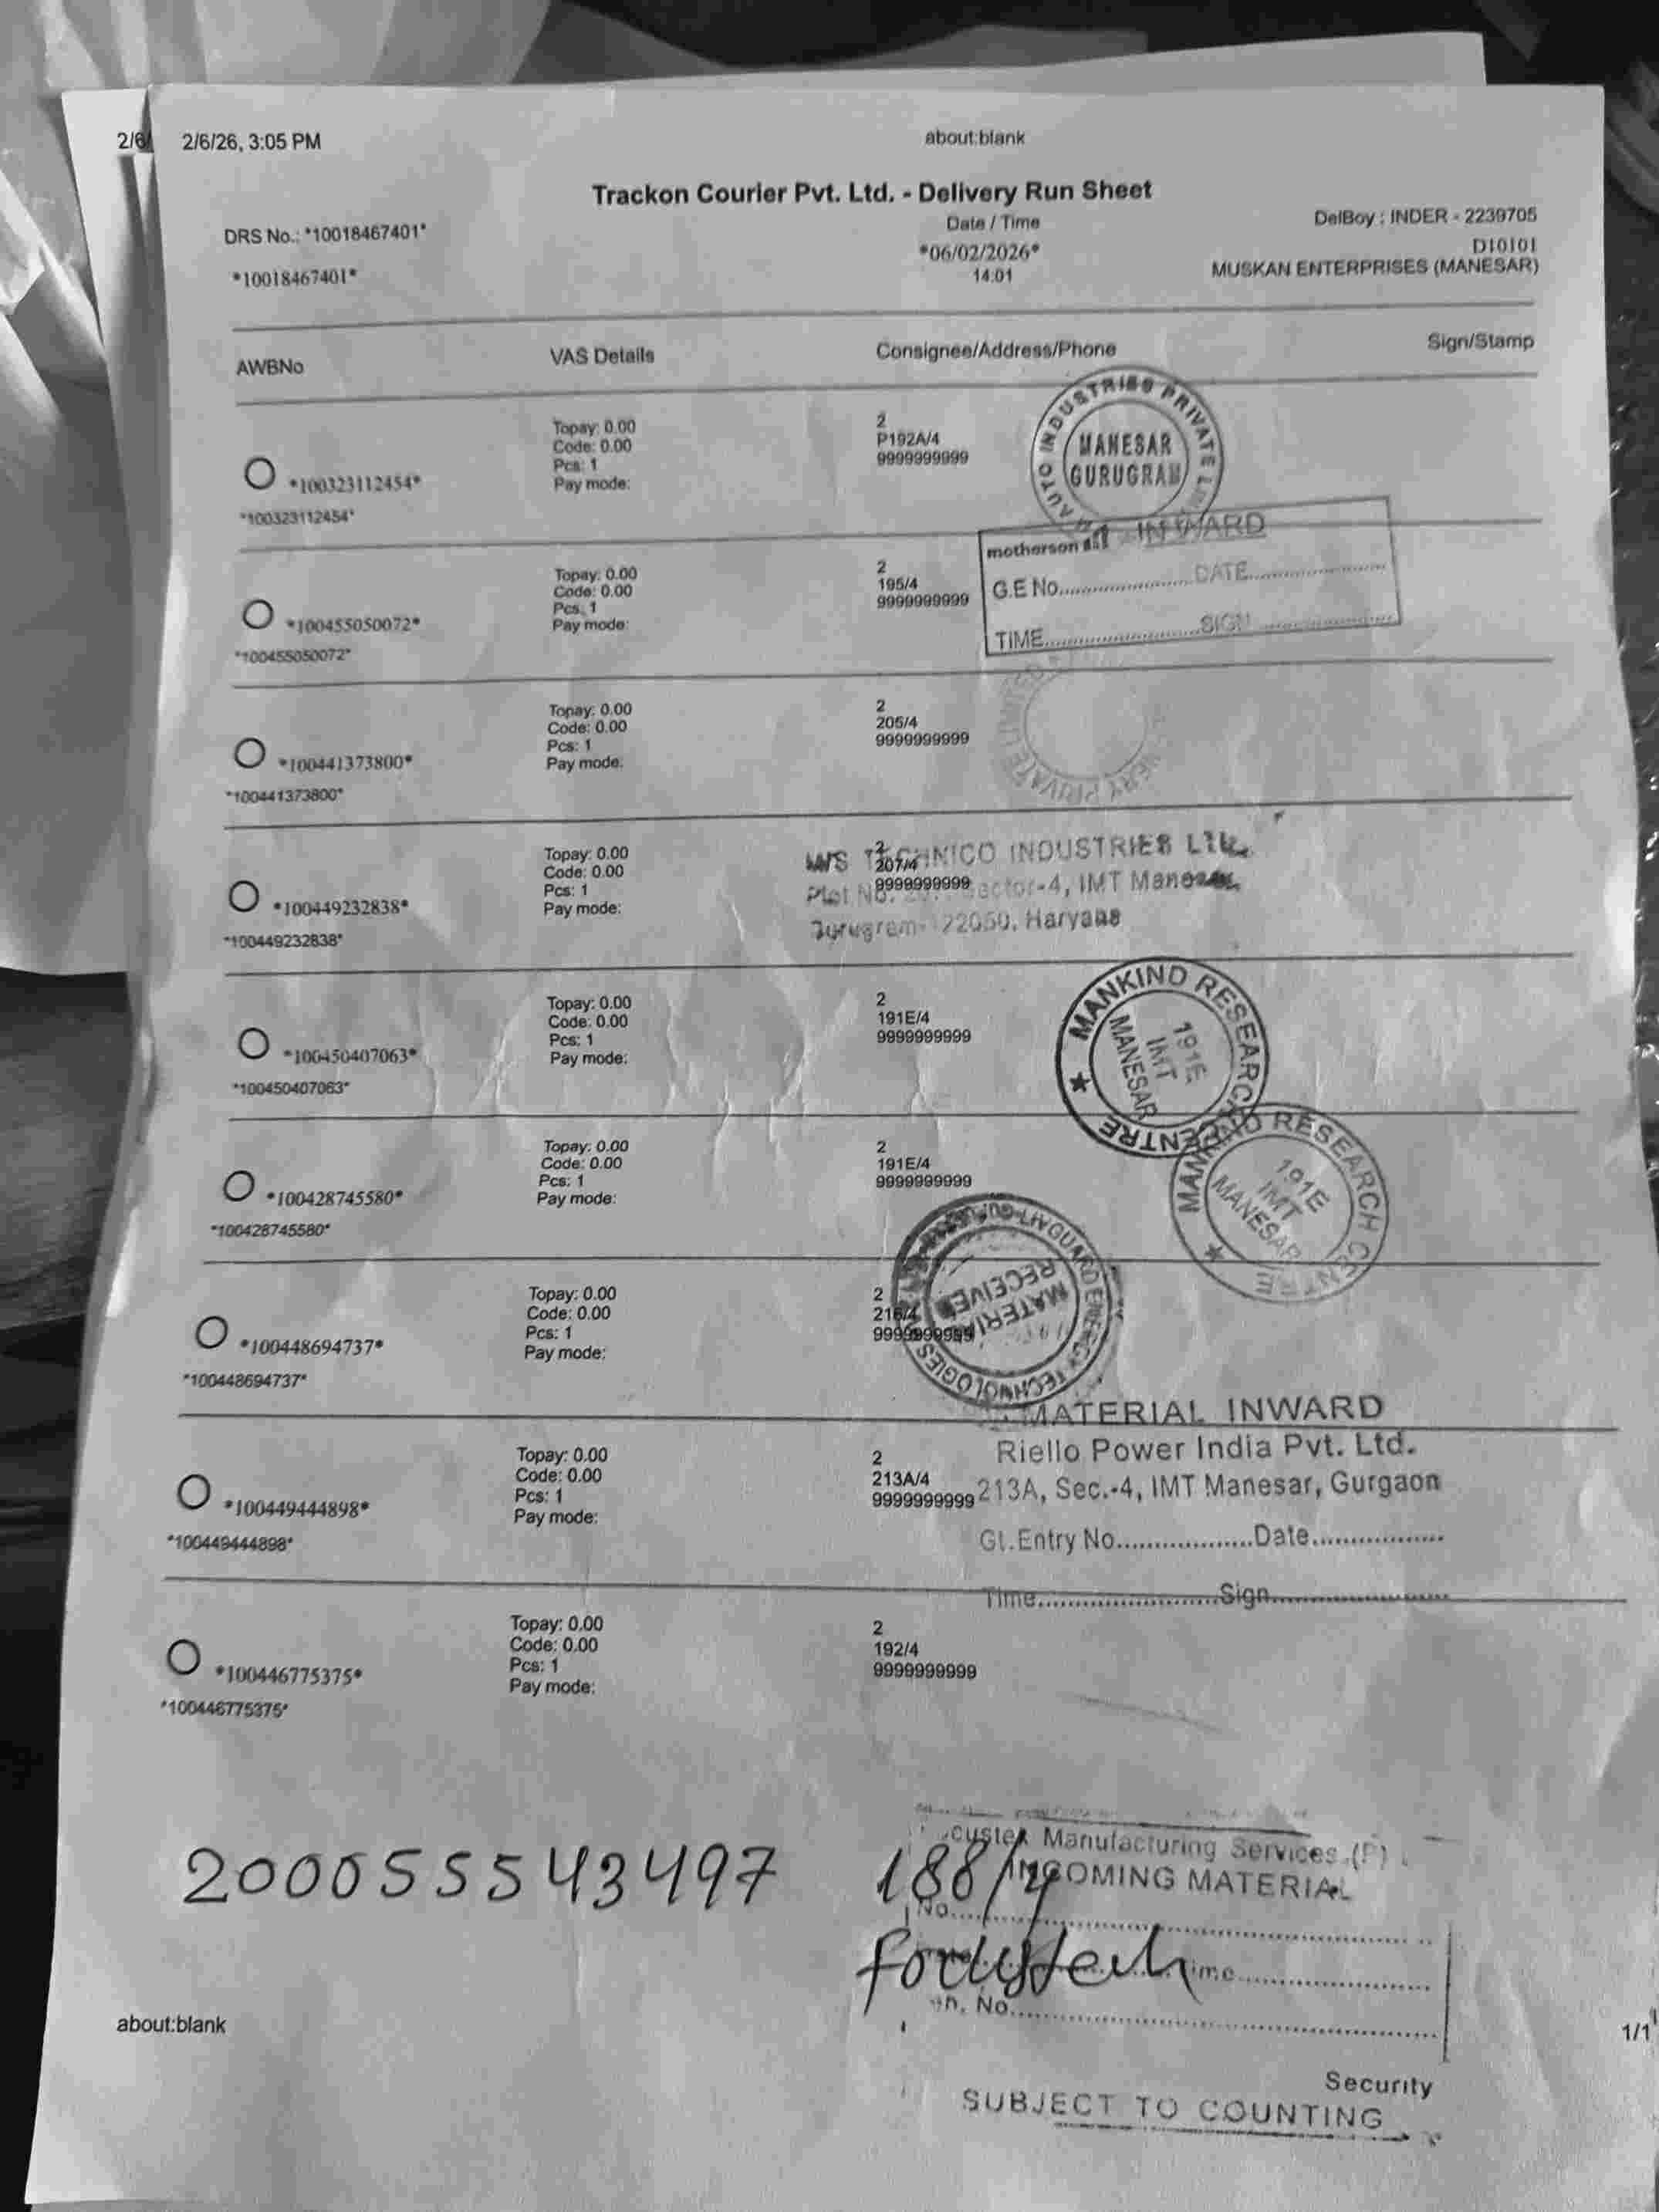 2/6/
2/6/26, 3:05 PM
about:blank
Trackon Courier Pvt. Ltd. - Delivery Run Sheet
DRS No.: *10018467401*
Date / Time
DelBoy : INDER - 2239705
*06/02/2026*
D10101
*10018467401*
14:01
MUSKAN ENTERPRISES (MANESAR)
AWBNo
VAS Details
Consignee/Address/Phone
Sign/Stamp
Topay: 0.00
Code: 0.00
Pcs: 1
Pay mode:
2
P192A/4
9999999999
*100323112454*
*100323112454*
AUTO INDUSTRIES PRIVATE
MANESAR
GURUGRAM
motherson INWARD
G.E No. DATE
TIME SIGN
Topay: 0.00
Code: 0.00
Pcs: 1
Pay mode:
2
195/4
9999999999
*100455050072*
*100455050072*
Topay: 0.00
Code: 0.00
Pcs: 1
Pay mode:
2
205/4
9999999999
*100441373800*
*100441373800*
PRIVATE
Topay: 0.00
Code: 0.00
Pcs: 1
Pay mode:
2
207/4
9999999999
*100449232838*
*100449232838*
M/S TECHNICO INDUSTRIES LTD.
Plot No. Sector-4, IMT Manesar,
Gurugram- 122050, Haryana
Topay: 0.00
Code: 0.00
Pcs: 1
Pay mode:
2
191E/4
9999999999
*100450407063*
*100450407063*
MANKIND RESEARCH CENTRE
191E
IMT
MANESAR
Topay: 0.00
Code: 0.00
Pcs: 1
Pay mode:
2
191E/4
9999999999
*100428745580*
*100428745580*
MANKIND RESEARCH CENTRE
191E
IMT
MANESAR
Topay: 0.00
Code: 0.00
Pcs: 1
Pay mode:
2
216/4
9999999999
*100448694737*
*100448694737*
LIVGUARD ENERGY TECHNOLOGIES
MATERIAL
RECEIVED
Topay: 0.00
Code: 0.00
Pcs: 1
Pay mode:
2
213A/4
9999999999
*100449444898*
*100449444898*
MATERIAL INWARD
Riello Power India Pvt. Ltd.
213A, Sec.-4, IMT Manesar, Gurgaon
Gt.Entry No. Date
Time Sign
Topay: 0.00
Code: 0.00
Pcs: 1
Pay mode:
2
192/4
9999999999
*100446775375*
*100446775375*
Manufacturing Services (P)
INCOMING MATERIAL
No.
Time
No.
200055543497
188/4
focustech
Security
SUBJECT TO COUNTING
about:blank
1/1